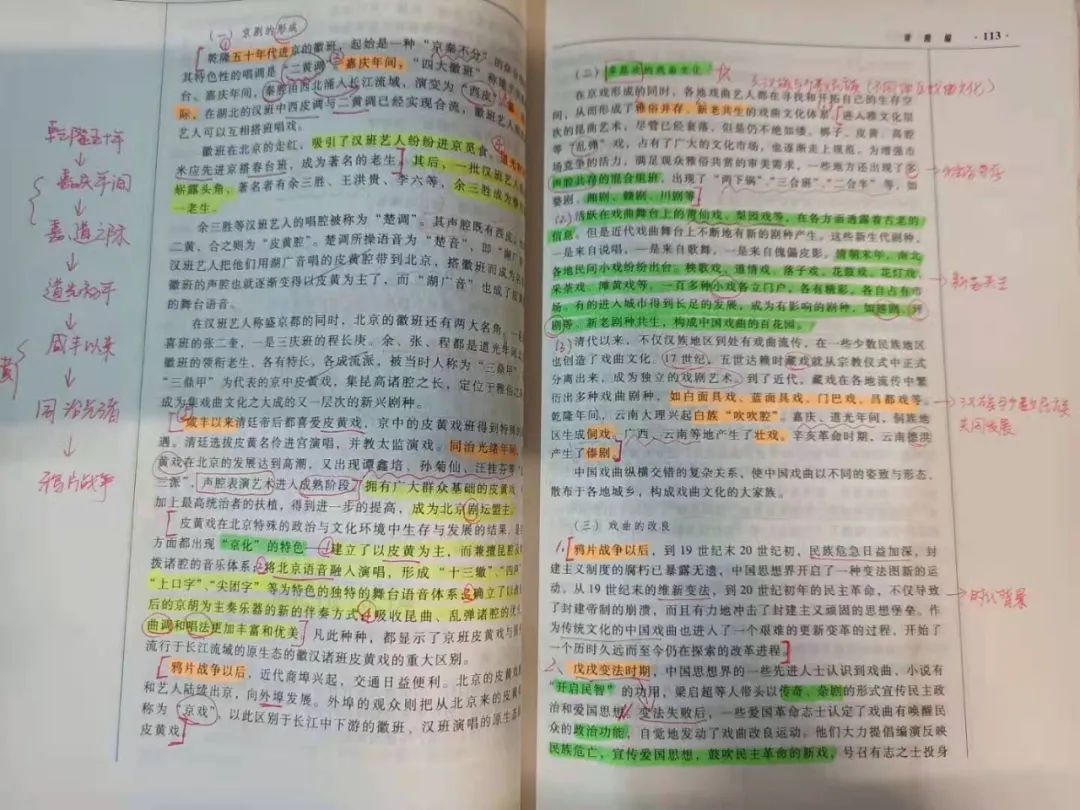 (一) 京剧的形成
乾隆五十年代进京的徽班，起始是一种“京秦不分”
其特色性的唱调是“二黄调”。嘉庆年间，“四大徽班”称
台、嘉庆年间，秦腔由西北涌入长江流域，演变为“西皮”
际，在湖北的汉班中西皮调与二黄调已经实现合流，徽班
艺人可以互相搭班唱戏。
徽班在北京的走红，吸引了汉班艺人纷纷进京觅食。道光
米应先进京搭春台班，成为著名的老生。其后，一批汉班艺人
崭露头角，著名者有余三胜、王洪贵、李六等，余三胜成为
一老生。
余三胜等汉班艺人的唱腔被称为“楚调”。其声腔既有西皮
二黄、合之则为“皮黄腔”。楚调所操语音为“楚音”，即“湖广
汉班艺人把他们用湖广音唱的皮黄腔带到北京，搭徽班而成为
徽班的声腔也就逐渐变得以皮黄为主了，而“湖广音”也成了皮
的舞台语言。
在汉班艺人称盛京都的同时，北京的徽班还有两大名角，一
喜班的张二奎，一是三庆班的程长庚。余、张、程都是道光年间
徽班的领衔老生，各有特长，各成流派，被当时人称为“三鼎甲”
“三鼎甲”为代表的京中皮黄戏，集昆高诸腔之长，定位于雅俗之
成为集戏曲文化之大成的又一层次的新兴剧种。
咸丰以来清廷帝后都喜爱皮黄戏，京中的皮黄戏班得到特殊的
遇。清廷选拔皮黄名伶进宫演唱，并教太监演戏。同治光绪年间
黄戏在北京的发展达到高潮，又出现谭鑫培、孙菊仙、汪桂芬等
三派”，声腔表演艺术进入成熟阶段。拥有广大群众基础的皮黄戏
加上最高统治者的扶植，得到进一步的提高，成为北京剧坛盟主。
皮黄戏在北京特殊的政治与文化环境中生存与发展的结果，是
方面都出现“京化”的特色：建立了以皮黄为主，而兼擅昆腔
拨诸腔的音乐体系；将北京语音融入演唱，形成“十三辙”、“四声”
“上口字”、“尖团字”等为特色的独特的舞台语音体系；确立了以
后的京胡为主奏乐器的新的伴奏方式；吸收昆曲、乱弹诸腔的优
曲调和唱法更加丰富和优美。凡此种种，都显示了京班皮黄戏与
流行于长江流域的原生态的徽汉诸班皮黄戏的重大区别。
鸦片战争以后，近代商埠兴起，交通日益便利。北京的皮黄戏
和艺人陆续出京，向外埠发展。外埠的观众则把从北京来的皮黄戏
称为“京戏”，以此区别于长江中下游的徽班、汉班演唱的原生态
皮黄戏。
乾隆五十年
嘉庆年间
嘉、道之际
道光初年
咸丰以来
同治光绪
鸦片战争
黄
·113·
(二) 多层次的戏曲文化
在京戏形成的同时，各地戏曲艺人都在寻找和开拓自己的生存空
间，从而形成了雅俗并存、新老共生的戏曲文化体系。进入雅文化层
次的昆曲艺术，尽管已经衰落，但是仍不绝如缕。梆子、皮黄、高腔
等“乱弹”戏，占有了广大的文化市场，也逐渐走上规范。为增强市
场竞争的活力，满足观众雅俗共赏的审美需求，一些地方还出现了多
声腔共存的混合组班，出现了“两下锅”、“三合班”、“二合半”等，如
婺剧、湘剧、赣剧、川剧等。
(2)活跃在戏曲舞台上的莆仙戏、梨园戏等，在各方面透露着古老的
信息。但是近代戏曲舞台上不断地有新的剧种产生。这些新生代剧种，
一是来自说唱，一是来自歌舞，一是来自傀儡皮影。清朝末年，南北
各地民间小戏纷纷出台。秧歌戏、道情戏、落子戏、花鼓戏、花灯戏、
采茶戏、滩黄戏等，一百多种小戏各立门户，各有精彩，各自占有市
场。有的进入城市得到长足的发展，成为有影响的剧种，如越剧、评
剧等。新老剧种共生，构成中国戏曲的百花园。
(3)清代以来，不仅汉族地区到处有戏曲流传，在一些少数民族地区
也创造了戏曲文化。17世纪，五世达赖时藏戏就从宗教仪式中正式
分离出来，成为独立的戏剧艺术。到了近代，藏戏在各地流传中繁
衍出多种戏曲剧种，如白面具戏、蓝面具戏、门巴戏、昌都戏等。
乾隆年间，云南大理兴起白族“吹吹腔”。嘉庆、道光年间，侗族地
区生成侗戏。广西、云南等地产生了壮戏。辛亥革命时期，云南德洪
产生了傣剧。
中国戏曲纵横交错的复杂关系，使中国戏曲以不同的姿致与形态，
散布于各地城乡，构成戏曲文化的大家族。
(三) 戏曲的改良
1.鸦片战争以后，到19世纪末20世纪初，民族危急日益加深，封
建主义制度的腐朽已暴露无遗，中国思想界开启了一种变法图新的运
动。从19世纪末的维新变法，到20世纪初年的民主革命，不仅导致
了封建帝制的崩溃，而且有力地冲击了封建主义顽固的思想学垒。作
为传统文化的中国戏曲也进入了一个艰难的更新变革的过程，开始了
一个历时久远而至今仍在探索的改革进程。
2.戊戌变法时期，中国思想界的一些先进人士认识到戏曲、小说有
“开启民智”的功用，梁启超等人带头以传奇、杂剧的形式宣传民主政
治和爱国思想。变法失败后，一些爱国革命志士认定了戏曲有唤醒民
众的政治功能，自觉地发动了戏曲改良运动。他们大力提倡编演反映
民族危亡，宣传爱国思想，鼓吹民主革命的新戏，号召有志之士投身
新老共生
汉族与少数民族
共同发展
时代背景